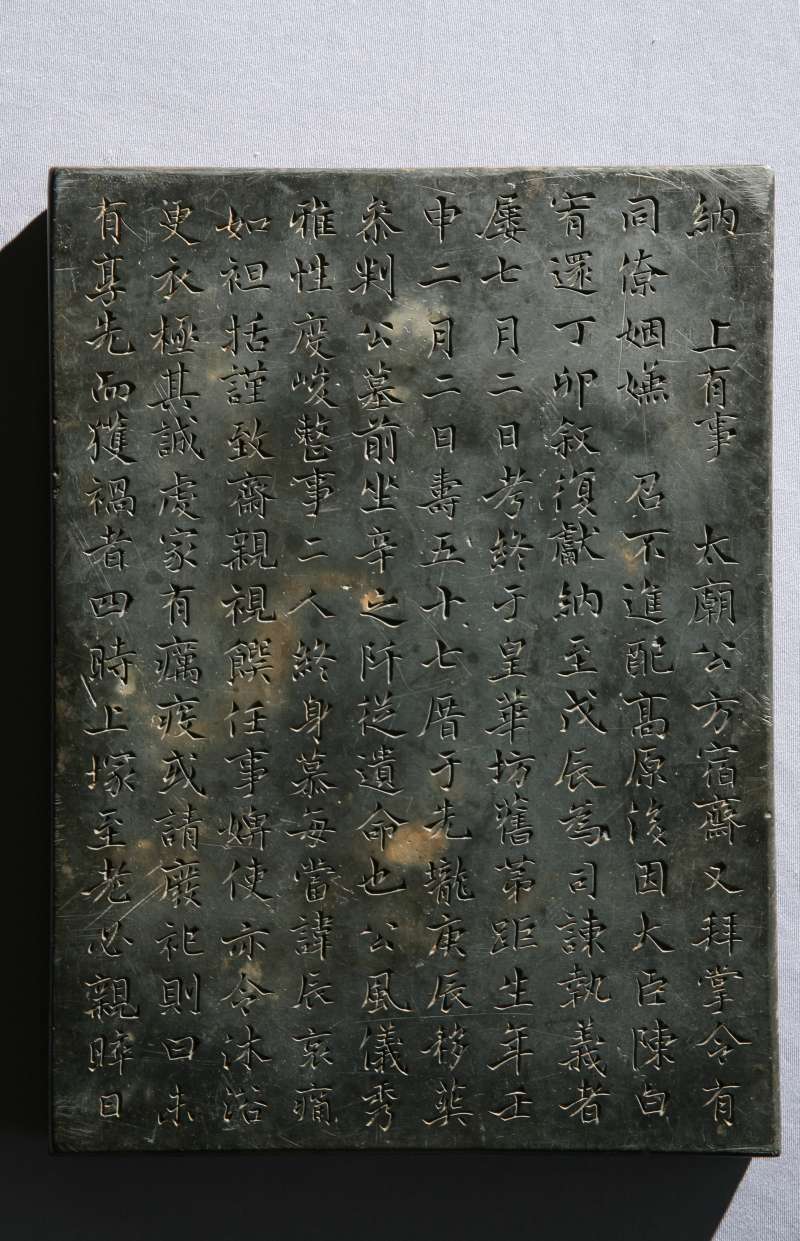 納 上有事 太廟公方宿齋又拜掌令有
同僚姻嫌 召不進配高原後因大臣陳白
宥還丁卯叙復獻納至戊辰為司諫執義者
屢七月二日考終于皇華坊舊第距生年壬
申二月二日壽五十七厝于先壠庚辰移葬
叅判公墓前坐辛之阡從遺命也公風儀秀
雅性度峻整事二人終身慕每當諱辰哀痛
如袒括謹致齋親視饌任事婢使亦令沐浴
更衣極其誠虔家有癘疾或請廢祀則曰未
有享先而獲禍者四時上塚至老必親晬日